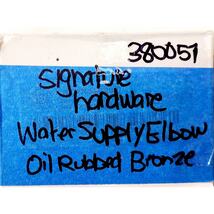 380057
Signature
hardware
Water Supply Elbow
Oil Rubbed Bronze